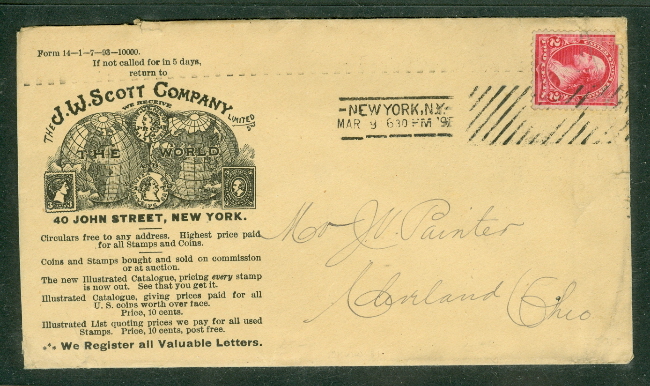 Form 14—1—7—93—10000.
If not called for in 5 days,
return to
THE J.W. SCOTT COMPANY LIMITED
WE RECEIVE
THE WORLD
40 JOHN STREET, NEW YORK.
Circulars free to any address. Highest price paid
for all Stamps and Coins.
Coins and Stamps bought and sold on commission
or at auction.
The new Illustrated Catalogue, pricing every stamp
is now out. See that you get it.
Illustrated Catalogue, giving prices paid for all
U. S. coins worth over face.
Price, 10 cents.
Illustrated List quoting prices we pay for all used
Stamps. Price, 10 cents, post free.
We Register all Valuable Letters.
NEW YORK, N.Y.
MAR 9 630 PM
2 2
Mr J.V. Painter
Cleveland Ohio